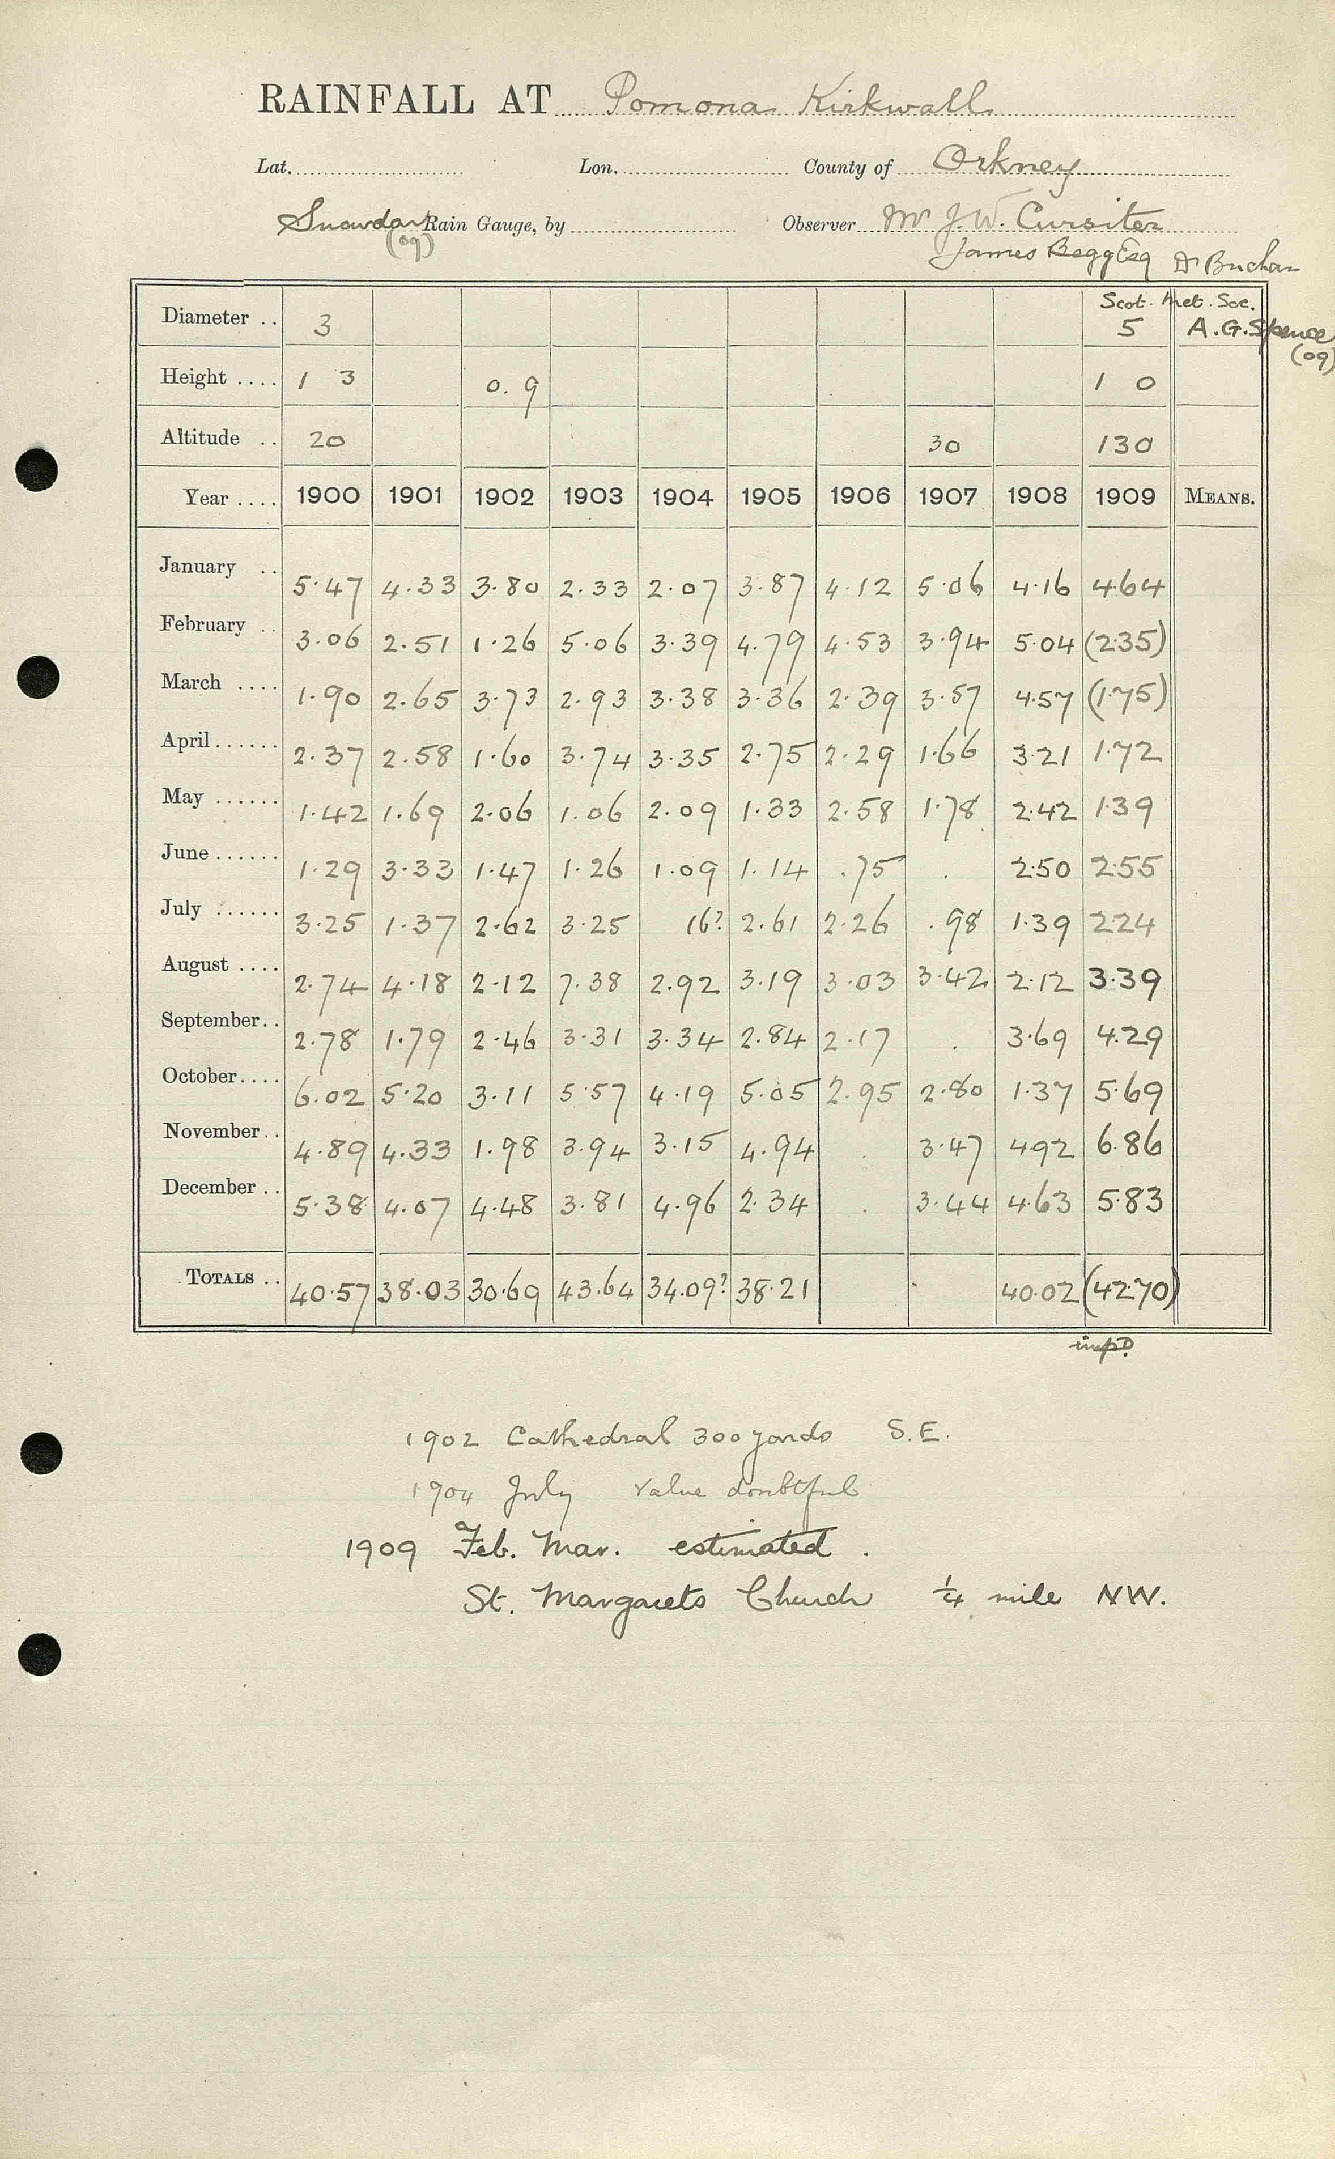 RAINFALL AT Pomona Kirkwall
Lat. Lon. County of Orkney
Snowdon Rain Gauge, by Observer Mr J. W. Cursiter
(09) James Begg Esq Dr Buchan
Scot. Met. Soc.
Diameter .. 3 5 A.G. Spence
(09)
Height .... 1 3 0.9 1 0
Altitude .. 20 30 130
Year .... 1900 1901 1902 1903 1904 1905 1906 1907 1908 1909 MEANS.
January .. 5.47 4.33 3.80 2.33 2.07 3.87 4.12 5.06 4.16 4.64
February .. 3.06 2.51 1.26 5.06 3.39 4.79 4.53 3.94 5.04 (2.35)
March .... 1.90 2.65 3.73 2.93 3.38 3.36 2.39 3.57 4.57 (1.75)
April...... 2.37 2.58 1.60 3.74 3.35 2.75 2.29 1.66 3.21 1.72
May ...... 1.42 1.69 2.06 1.06 2.09 1.33 2.58 1.78 2.42 1.39
June...... 1.29 3.33 1.47 1.26 1.09 1.14 .75 . 2.50 2.55
July ...... 3.25 1.37 2.62 3.25 16? 2.61 2.26 .98 1.39 2.24
August .... 2.74 4.18 2.12 7.38 2.92 3.19 3.03 3.42 2.12 3.39
September.. 2.78 1.79 2.46 3.31 3.34 2.84 2.17 . 3.69 4.29
October.... 6.02 5.20 3.11 5.57 4.19 5.05 2.95 2.80 1.37 5.69
November.. 4.89 4.33 1.98 3.94 3.15 4.94 . 3.47 4.92 6.86
December .. 5.38 4.07 4.48 3.81 4.96 2.34 . 3.44 4.63 5.83
TOTALS .. 40.57 38.03 30.69 43.64 34.09? 38.21 . 40.02 (42.70)
1902 Cathedral 300 yards S.E.
1904 July value doubtful
1909 Feb. Mar. estimated.
St. Margarets Church ¼ mile NW.